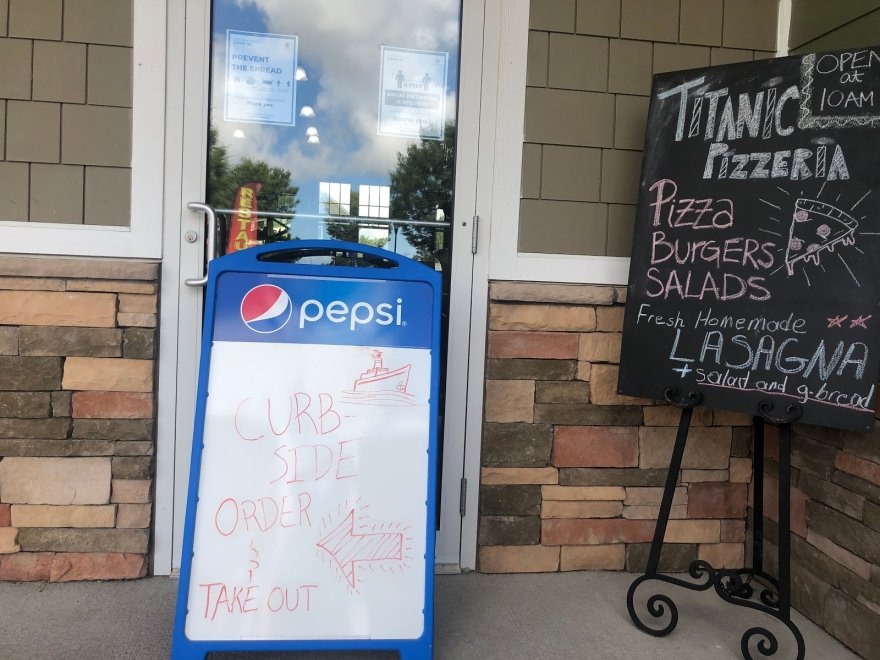 PREVENT
THE SPREAD
Thank you.
6 FEET
SOCIAL DISTANCING
IS REQUIRED
Thank you.
RESTAU
pepsi
CURB-
SIDE
ORDER
&
TAKE OUT
OPEN
at
10AM
TITANIC
PIZZERIA
Pizza
BURGERS
SALADS
Fresh Homemade
LASAGNA
+ salad and g-bread